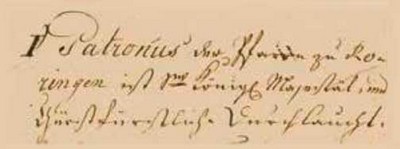 1 Patronus der Pfarre zu Ko-
ringen ist Sr Königl Majestät und
Churfürstliche Durchlaucht.